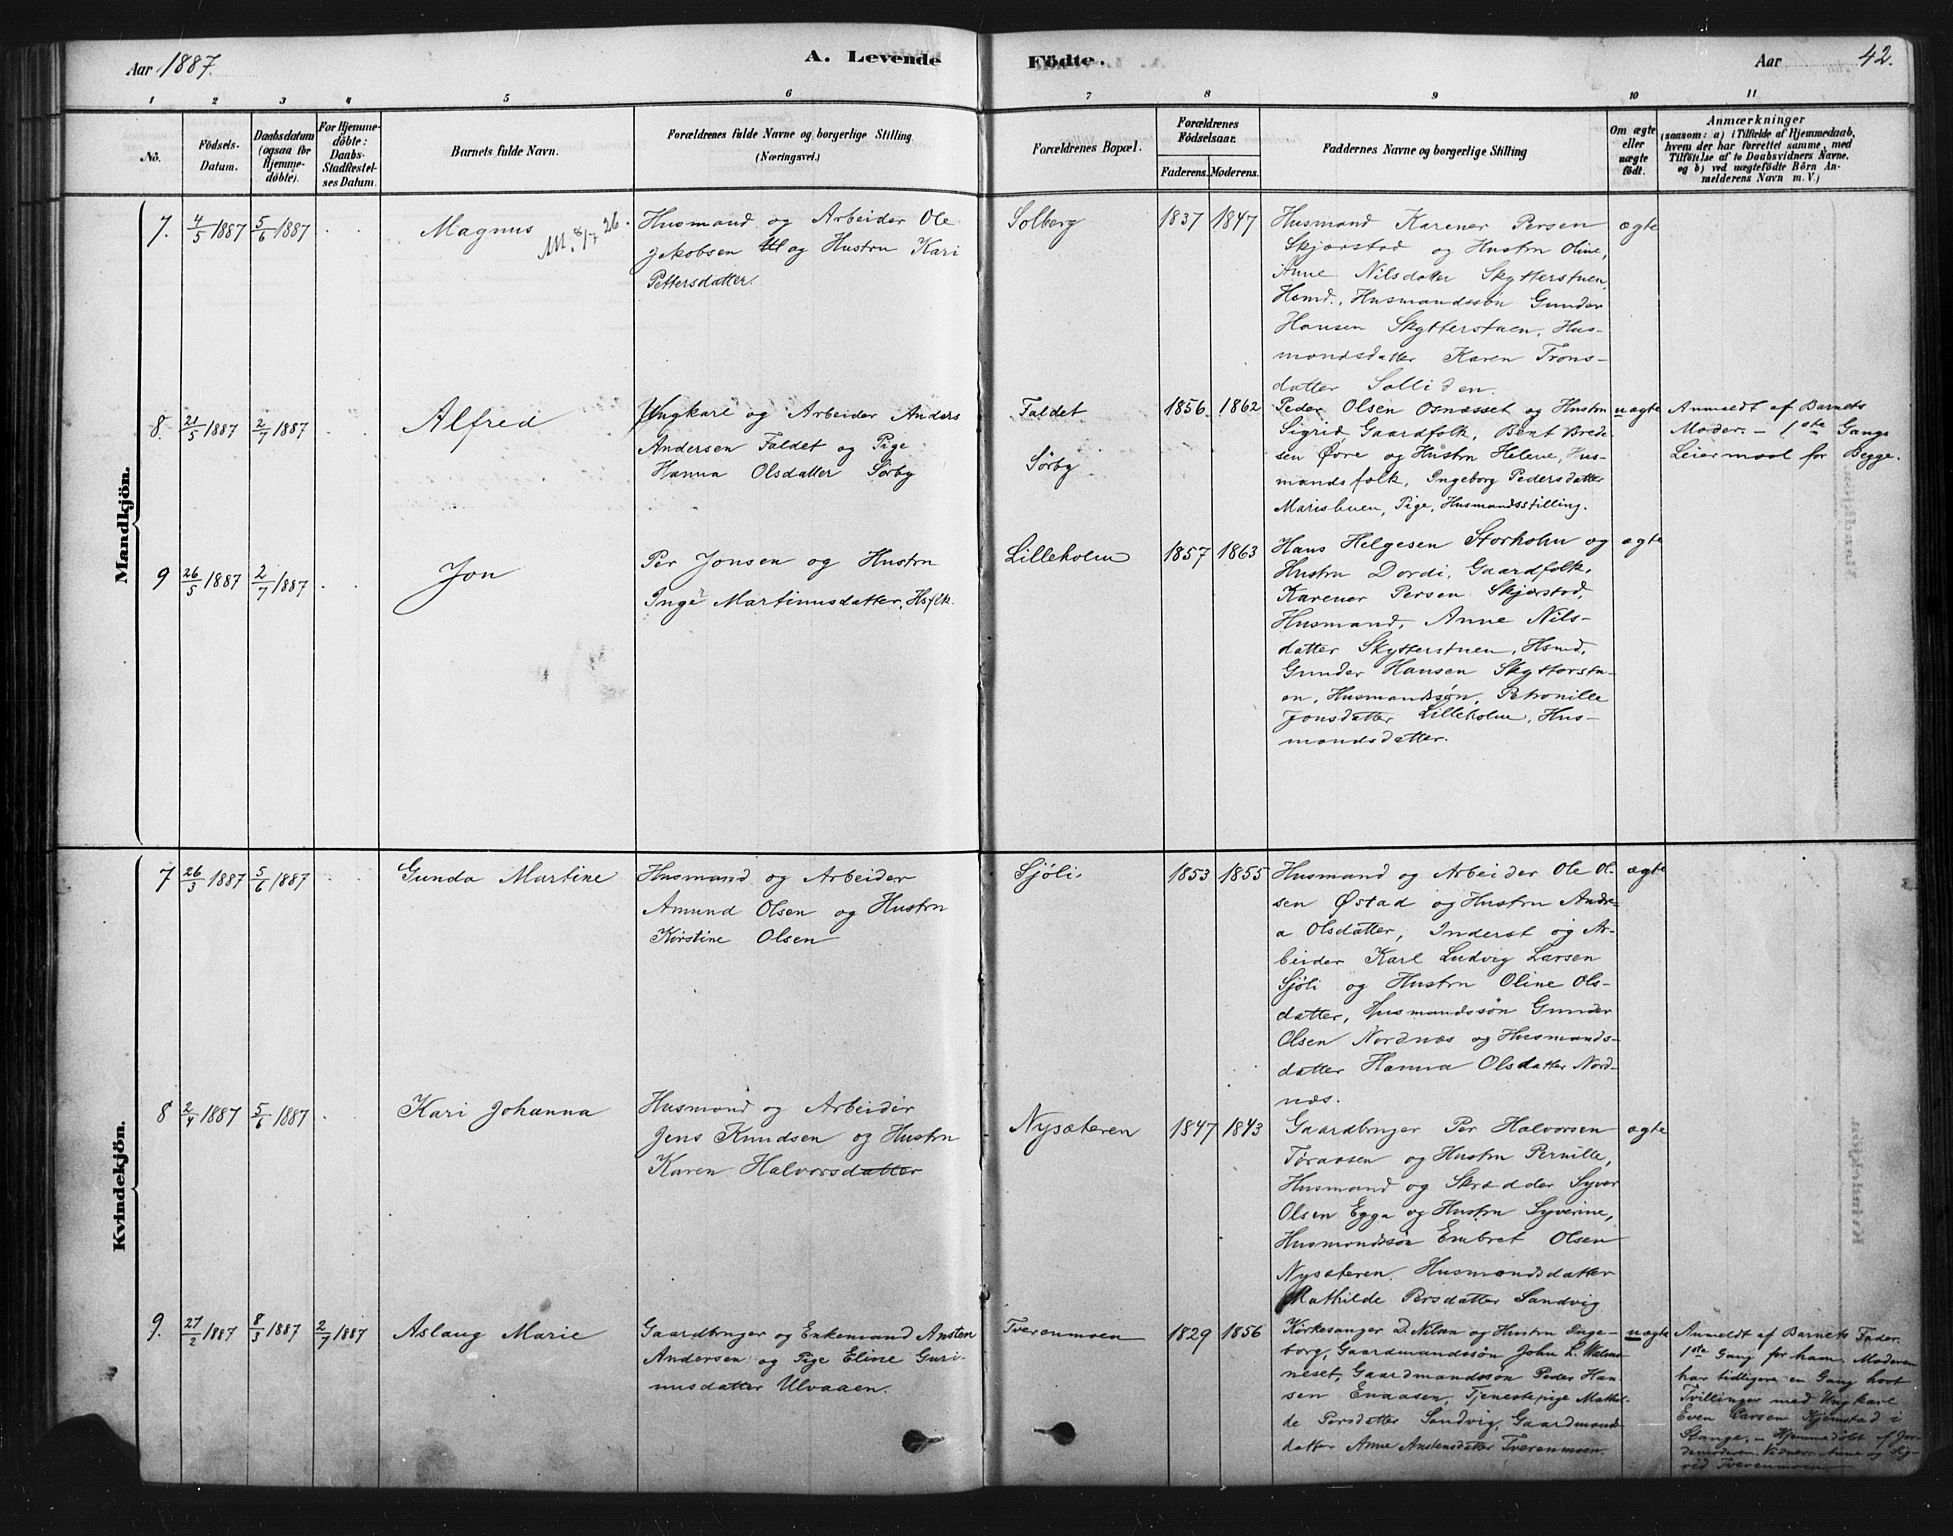 Aar 1887.
A. Levende
Födte.
Aar
42.
1
2
3
4
5
6
7
8
9
10
11
No.
Födsels-
Datum.
Daabsdatum
(ogsaa for
Hjemme-
döbte).
For Hjemme-
döbte:
Daabs-
Stadfæstel-
ses Datum.
Barnets fulde Navn.
Forældrenes fulde Navne og borgerlige Stilling.
(Næringsvei.)
Forældrenes Bopæl.
Forældrenes
Födselsaar.
Faderens.
Moderens.
Faddernes Navne og borgerlige Stilling
Om ægte
eller
uægte
födt.
Anmærkninger
(saasom: a) i Tilfælde af Hjemmedaab,
hvem der har forrettet samme, med
Tilföielse af to Daabsvidners Navne,
og b) ved uægtefödte Börn An-
melderens Navn m. V.)
Mandkjön.
7. 4/5 1887 5/6 1887
Magnus
M. 8/7 26.
Husmand og Arbeider Ole
Jakobsen og Hustru Kari
Pettersdatter.
Solberg
1837 1847
Husmand Karener Persen
Skjærstad og Hustru Oline,
Anne Nilsdatter Skytterstuen,
Hsmd., Husmandssön Gunder
Hansen Skytterstuen, Hus-
mandsdatter Karen Trons-
datter Solliden.
ægte
8. 21/5 1887 2/7 1887
Alfred
Ungkarl og Arbeider Anders
Andersen Faldet og Pige
Hanna Olsdatter Sörby
Faldet
Sörby
1856. 1862
Peder Olsen Osnæsset og Hustru
Sigrid, Gaardfolk, Bent Brede-
sen Øvre og Hustru Helene, Hus-
mandsfolk, Ingeborg Pedersdatter
Marisbuen, Pige, Husmandsstilling.
uægte
Anmeldt af Barnets
Moder. – 1ste Gangs
Leiermaal for Begge.
9 26/5 1887 2/7 1887
Jon
Per Jonsen og Hustru
Inge Martinusdatter, Hsflk.
Lilleholm
1857 1863
Hans Helgesen Storholm og
Hustru Dordi, Gaardfolk,
Karener Persen Skjærstad,
Husmand, Anne Nils-
datter Skytterstuen, Hsmd,
Gunder Hansen Skytterstu-
en, Husmandssön, Petronille
Jonsdatter Lilleholm, Hus-
mandsdatter.
ægte
Kvindekjön.
7 26/3 1887 5/6 1887
Gunda Martine
Husmand og Arbeider
Amund Olsen og Hustru
Kirstine Olsen
Sjöli
1853 1855
Husmand og Arbeider Ole Ol-
sen Østad og Hustru Andre-
a Olsdatter, Inderst og Ar-
beider Karl Ludvig Larsen
Sjöli og Hustru Oline Ols-
datter, Husmandssön Gunder
Olsen Nordnæs og Husmands-
datter Hanna Olsdatter Nord-
næs.
ægte
8 2/4 1887 5/6 1887
Kari Johanna
Husmand og Arbeider
Jens Knudsen og Hustru
Karen Halvorsdatter
Nysæteren
1847 1843
Gaardbruger Per Halvorsen
Töraasen og Hustru Pernille,
Husmand og Skrædder Syver
Olsen Egga og Hustru Syverine,
Husmandssön Embret Olsen
Nysæteren, Husmandsdatter
Mathilde Persdatter Sandvig
ægte
9. 27/2 1887 8/3 1887 2/7 1887
Aslaug Marie
Gaardbruger og Enkemand Ansten
Andersen og Pige Eline Guri-
nusdatter Ulvaaen.
Tverenmoen
1829 1856
Kirkesanger D. Nilsen og Hustru Inge-
borg, Gaardmandssön John L.
neset, Gaardmandssön Peder Han-
sen Enaasen, Tjenestepige Mathil-
de Persdatter Sandvig, Gaardmands-
datter Anne Anstensdatter Tverenmoen.
uægte
Anmeldt af Barnets Fader.
1ste Gang for ham. Moderen
har tidligere en Gang havt
Tvillinger med Ungkarl
Even Larsen Kjemstad i
Stange. – Hjemmedöbt af Jor-
demoderen. Vidner: Anne og Sig-
rid Tverenmoen.